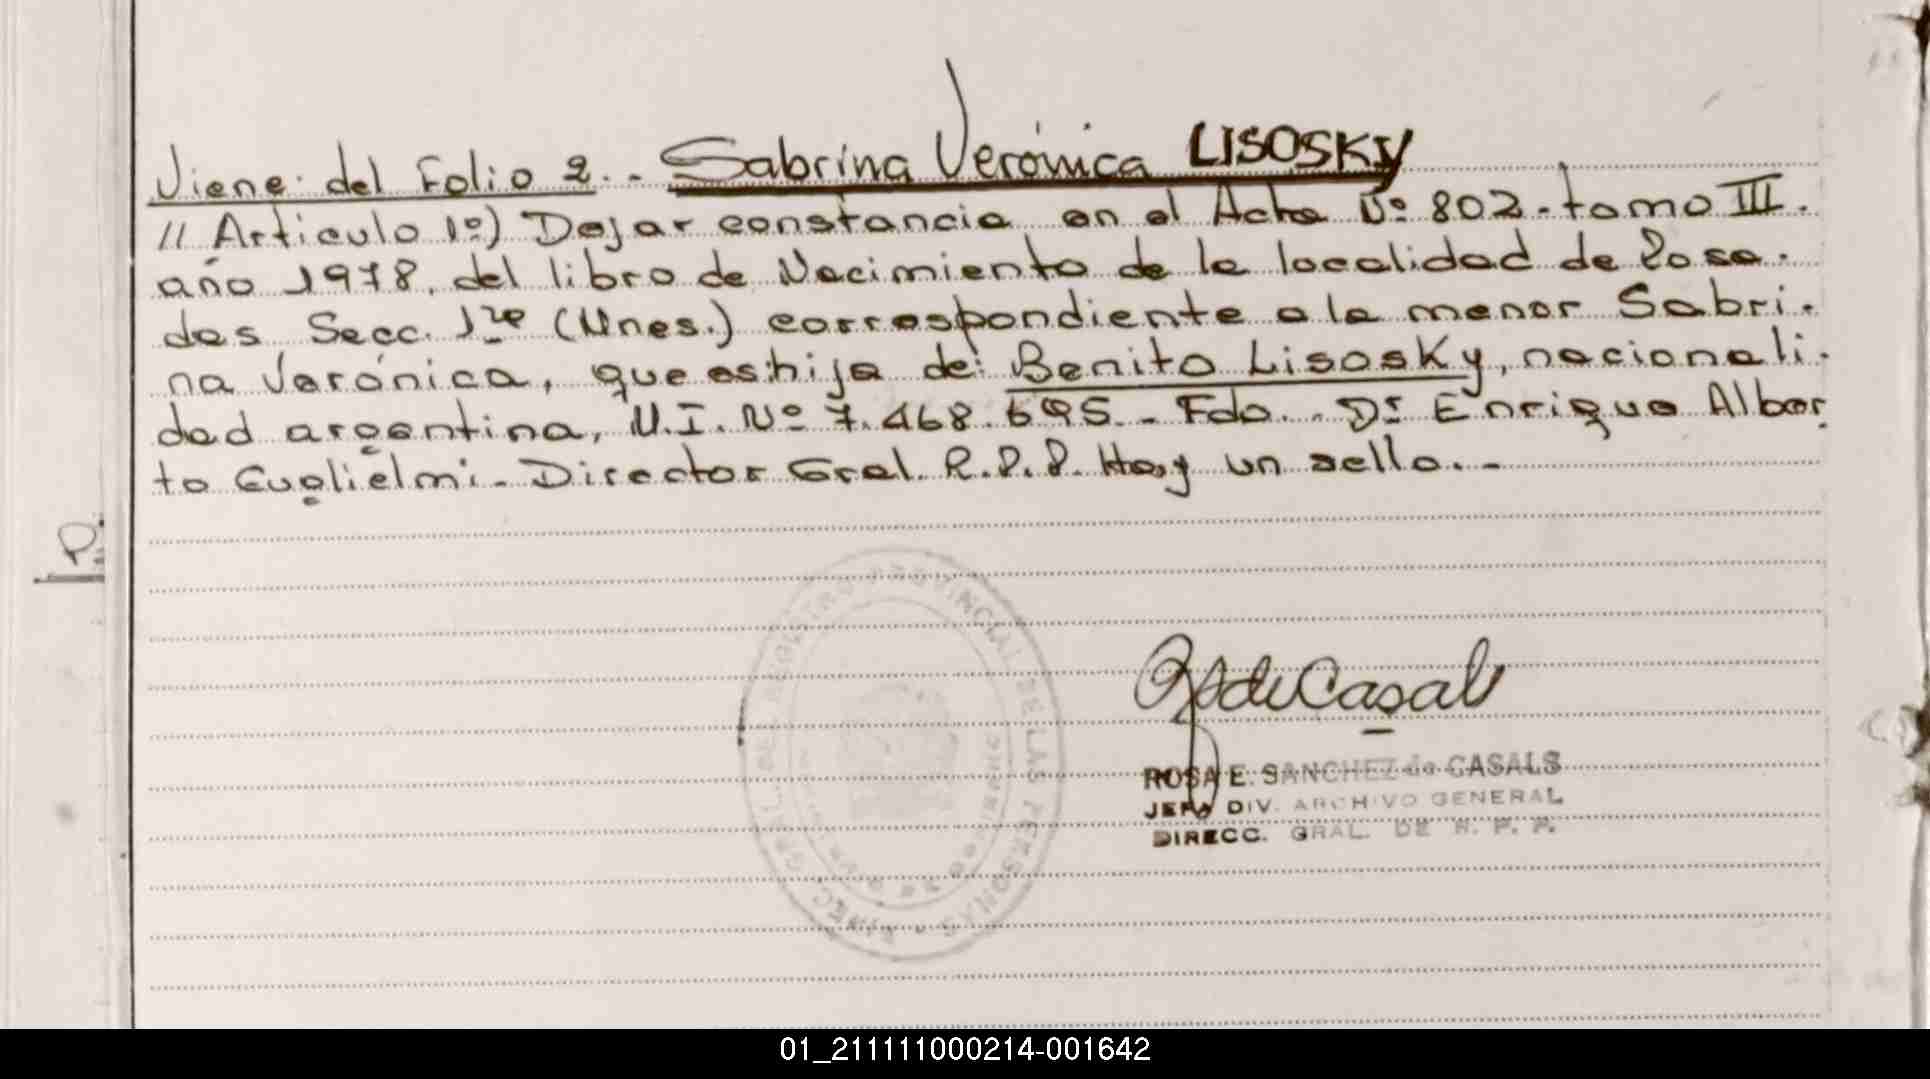 Viene del Folio 2.- Sabrina Verónica LISOSKY
// Artículo 1º) Dejar constancia en el Acta Nº 802-tomo III.
año 1978, del libro de Nacimiento de la localidad de Posa-
das Secc. 1ra (Mnes.) correspondiente a la menor Sabri-
na Verónica, que es hija de: Benito Lisosky, nacionali-
dad argentina, M.I. Nº 7.468.695.- Fdo.. Dr Enrique Alber-
to Guglielmi- Director Gral. R.P.P. Hay un sello.-
P.
ROSA E. SANCHEZ de CASALS
JEFA DIV. ARCHIVO GENERAL
DIRECC. GRAL. DE R. P. P.
DIREC. GRAL. DE REGISTRO PROVINCIAL DE LAS PERSONAS
01_211111000214-001642